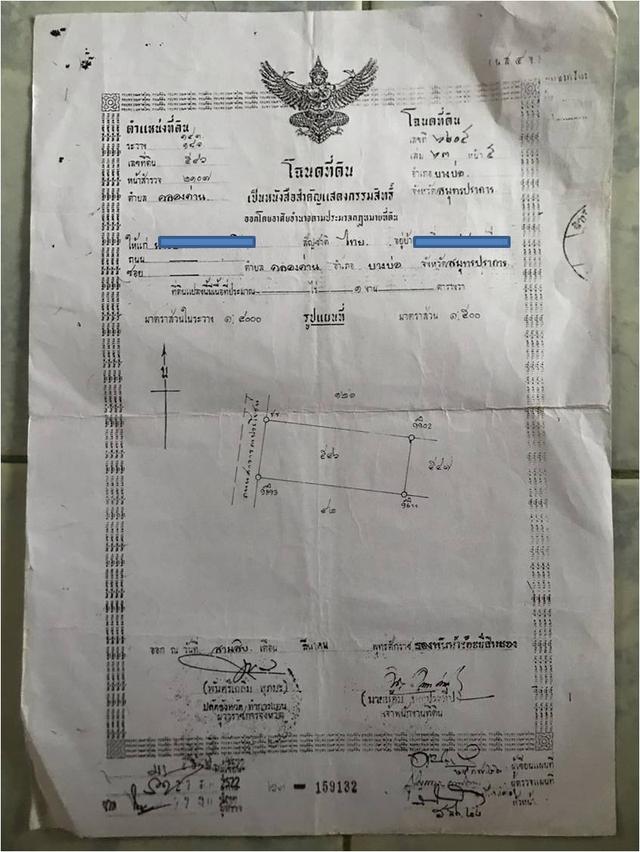 (น ส ๔ จ)
ตำแหน่งที่ดิน
ระวาง
เลขที่ดิน ๕๔๖
หน้าสำรวจ ๒๑๐๗
ตำบล คลองด่าน
โฉนดที่ดิน
เลขที่ ๒๒๐๔
เล่ม ๒๓ หน้า ๕
อำเภอ บางบ่อ
จังหวัดสมุทรปราการ
โฉนดที่ดิน
เป็นหนังสือสำคัญแสดงกรรมสิทธิ์
ออกโดยอาศัยอำนาจตามประมวลกฎหมายที่ดิน
ให้แก่ สัญชาติ ไทย อยู่บ้าน
ถนน
ซอย ตำบล คลองด่าน อำเภอ บางบ่อ จังหวัดสมุทรปราการ
ที่ดินแปลงนี้มีเนื้อที่ประมาณ ไร่ ๑ งาน ตารางวา
มาตราส่วนในระวาง ๑:๔๐๐๐ รูปแผนที่ มาตราส่วน ๑:๕๐๐
น
๑๒๑
ถนนสาธารณประโยชน์
๕๔๖
๕๔๗
๔๒
ออก ณ วันที่ สามสิบ เดือน มีนาคม พุทธศักราช สองพันห้าร้อยยี่สิบสอง
เจ้าพนักงานที่ดิน
ผู้เขียนแผนที่
ผู้ตรวจแผนที่
หัวหน้า
159132